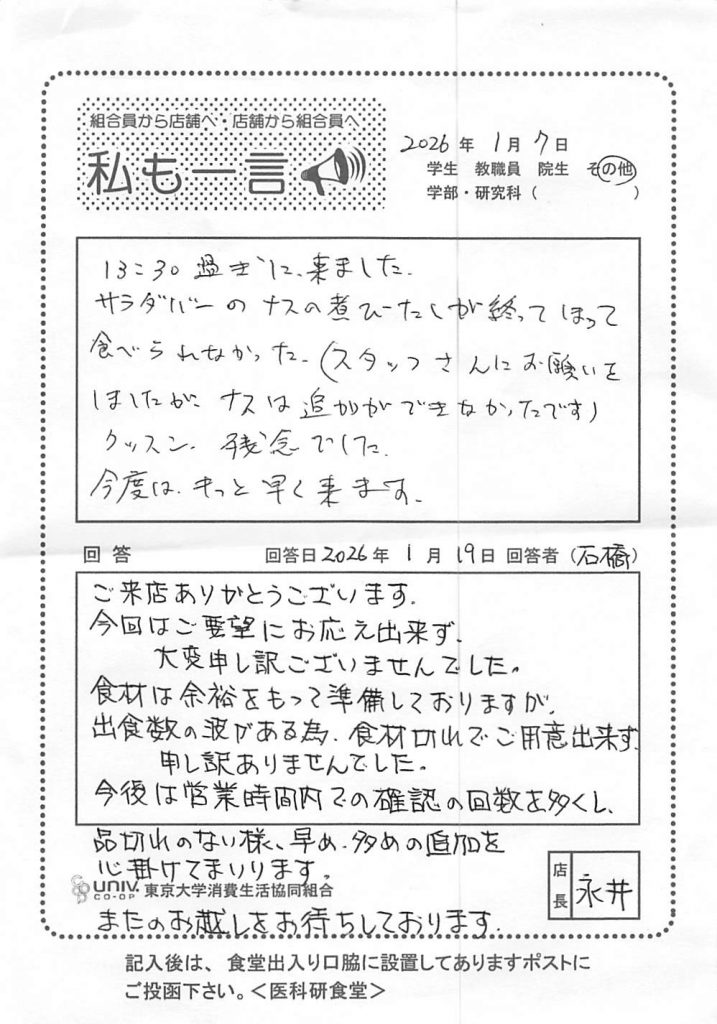 組合員から店舗へ・店舗から組合員へ
私も一言
2026年 1月 7日
学生 教職員 院生 その他
学部・研究科（ ）
13:30 過ぎに、来ました。
サラダバーの ナスの煮びたしが終ってしまって
食べられなかった。(スタッフさんにお願いを
しましたが、ナスは追加ができなかったです)
クッスン、残念でした。
今度は、きっと早く来ます。
回答 回答日 2026年 1月 19日 回答者（石橋）
ご来店ありがとうございます。
今回はご要望にお応え出来ず、
大変申し訳ございませんでした。
食材は余裕をもって準備しておりますが、
出食数の波がある為、食材切れでご用意出来ず、
申し訳ありませんでした。
今後は営業時間内での確認の回数を多くし、
品切れのない様、早め、多めの追加を
心掛けてまいります。
univ. CO-OP 東京大学消費生活協同組合
またのお越しをお待ちしております。
店長 永井
記入後は、食堂出入り口脇に設置してありますポストに
ご投函下さい。＜医科研食堂＞